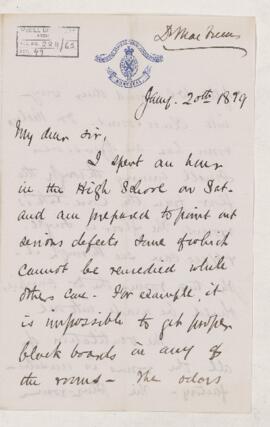 Dr MacVicar
Jany. 20th 1879
My dear Sir,
I spent an hour
in the High School on Sat.
and am prepared to point out
serious defects some of which
cannot be remedied while
others can. For example, it
is impossible to get proper
black boards in any of
the rooms — The odors